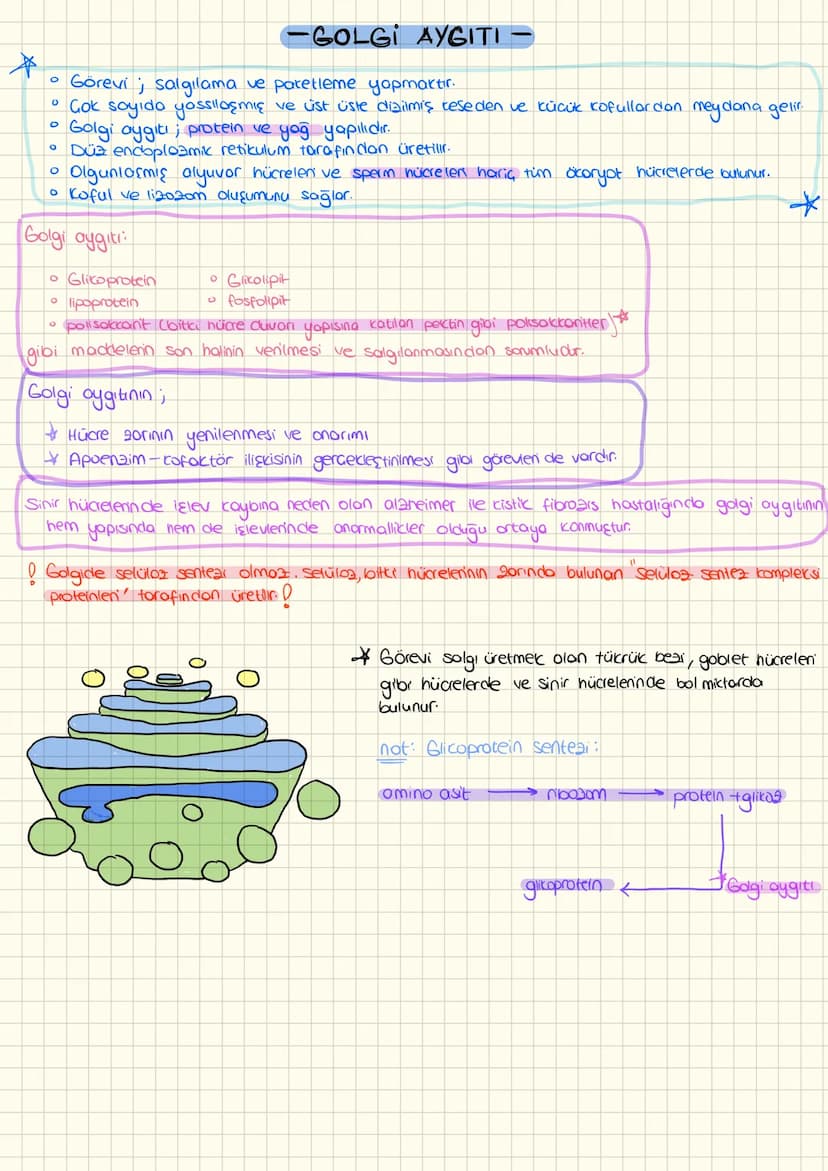 -GOLGİ AYGITI-
Görevi ; salgılama ve paketleme yapmaktır.
Çok sayıda yassılaşmış ve üst üste dizilmiş keseden ve küçük kofullardan meydana gelir.
Golgi aygıtı ; protein ve yağ yapılıdır.
Düz endoplazmik retikulum tarafından üretilir.
Olgunlaşmış alyuvar hücreleri ve sperm hücreleri hariç tüm ökaryot hücrelerde bulunur.
Koful ve lizozom oluşumunu sağlar.
Golgi aygıtı:
Glikoprotein
Glikolipit
lipoprotein
fosfolipit
polisakkarit (bitki hücre duvarı yapısına katılan pektin gibi polisakkaritler)
gibi maddelerin son halinin verilmesi ve salgılanmasından sorumludur.
Golgi aygıtının ;
Hücre zarının yenilenmesi ve onarımı
Apoenzim-kofaktör ilişkisinin gerçekleştirilmesi gibi görevleri de vardır.
Sinir hücrelerinde işlev kaybına neden olan alzheimer ile kistik fibrozis hastalığında golgi aygıtının
hem yapısında hem de işlevlerinde anormallikler olduğu ortaya konmuştur.
! Golgide selüloz sentezi olmaz. Selüloz, bitki hücrelerinin zarında bulunan "selüloz sentez kompleksi
proteinleri" tarafından üretilir. !
Görevi salgı üretmek olan tükrük bezi, goblet hücreleri
gibi hücrelerde ve sinir hücrelerinde bol miktarda
bulunur.
not: Glicoprotein sentezi :
amino asit → ribozom → protein + glikoz
glikoprotein ← Golgi aygıtı